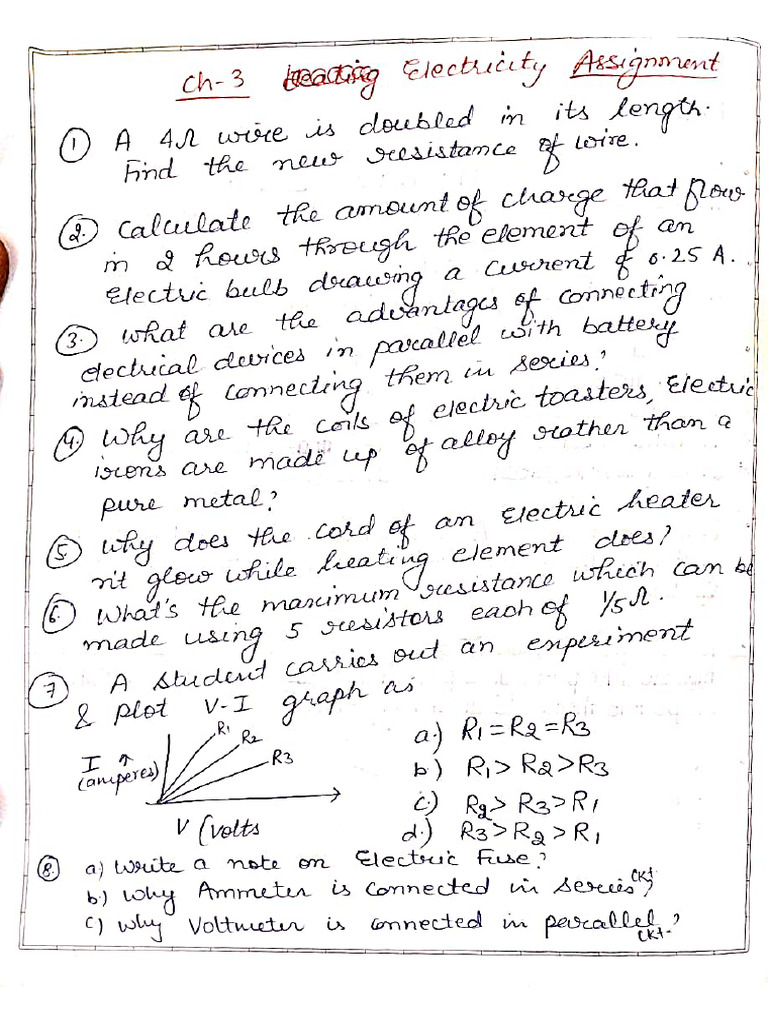 Ch-3 Electricity Assignment
① A 4Ω wire is doubled in its length.
Find the new resistance of wire.
②. Calculate the amount of charge that flow
in 2 hours through the element of an
Electric bulb drawing a current of 0.25 A.
③. What are the advantages of connecting
electrical devices in parallel with battery
instead of connecting them in series?
④. Why are the coils of electric toasters, Electric
irons are made up of alloy rather than a
pure metal?
⑤ Why does the cord of an Electric heater
n't glow while heating element does?
⑥. What's the maximum resistance which can be
made using 5 resistors each of 1/5 Ω.
⑦ A student carries out an experiment
& plot V-I graph as
I ↑
(amperes)
R1
R2
R3
V (volts
a.) R1 = R2 = R3
b.) R1 > R2 > R3
c.) R2 > R3 > R1
d.) R3 > R2 > R1
⑧. a) Write a note on Electric Fuse?
b.) Why Ammeter is connected in series ckt?
c) Why Voltmeter is connected in parallel ckt.?